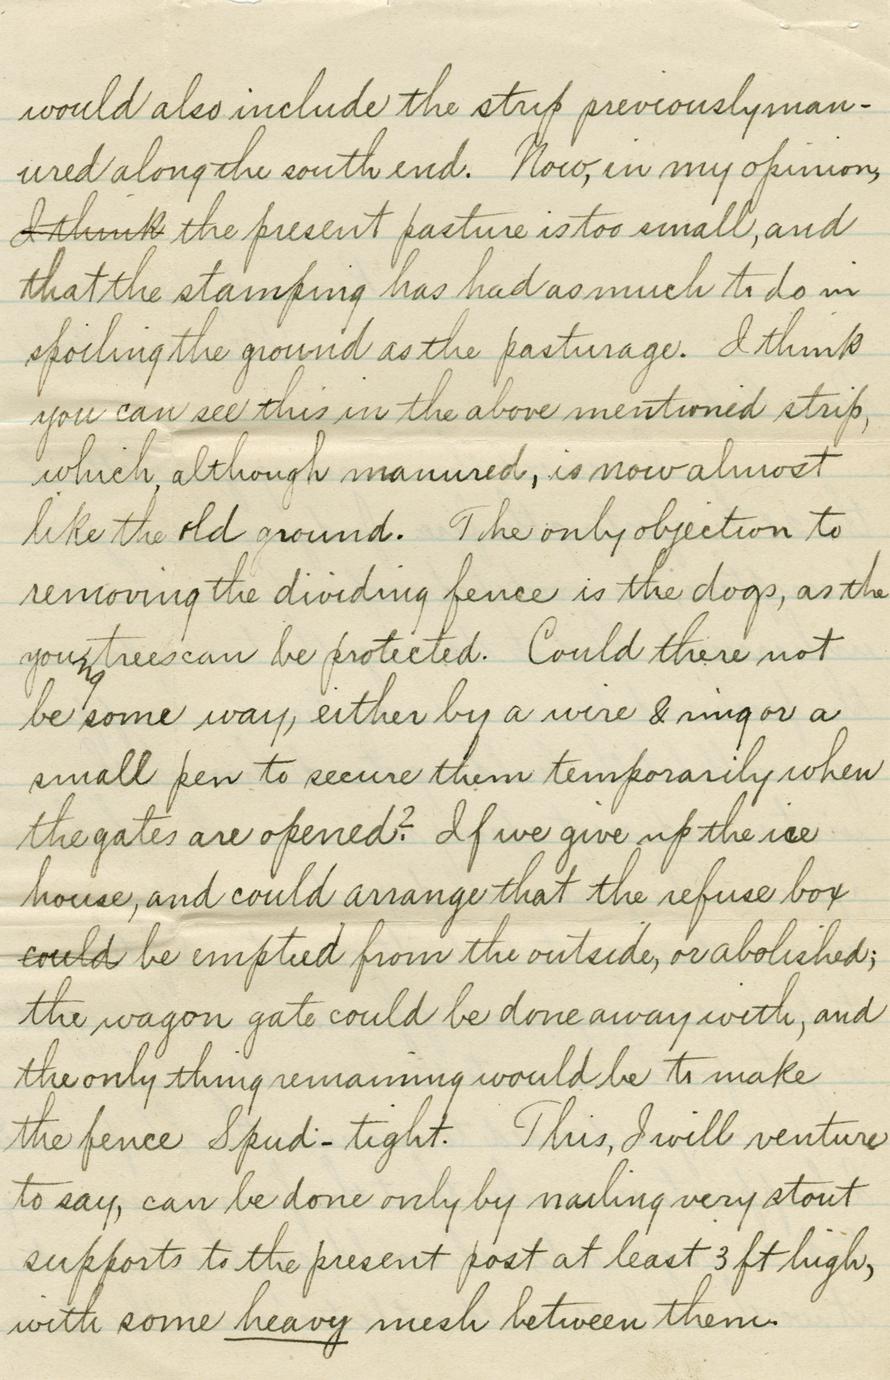 would also include the strip previously man-
ured along the south end. Now, in my opinion,
I think the present pasture is too small, and
that the stamping has had as much to do in
spoiling the ground as the pasturage. I think
you can see this in the above mentioned strip,
which, although manured, is now almost
like the old ground. The only objection to
removing the dividing fence is the dogs, as the
young trees can be protected. Could there not
be some way, either by a wire & ring or a
small pen to secure them temporarily when
the gates are opened? If we give up the ice
house, and could arrange that the refuse box
could be emptied from the outside, or abolished;
the wagon gate could be done away with, and
the only thing remaining would be to make
the fence Spud-tight. This, I will venture
to say, can be done only by nailing very stout
supports to the present post at least 3 ft high,
with some heavy mesh between them.